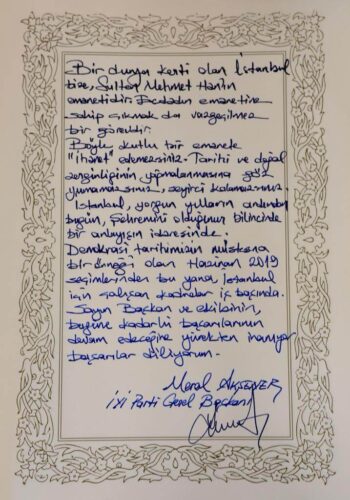 Bir dünya kenti olan İstanbul
bize, Sultan Mehmet Han'ın
emanetidir. Ecdadın emanetine
sahip çıkmak da vazgeçilmez
bir görevdir.
Böyle kutlu bir emanete
"ihanet" edemezsiniz. Tarihi ve doğal
zenginliğinin yağmalanmasına göz
yumamazsınız, seyirci kalamazsınız.
İstanbul, yorgun yılların ardından
bugün, Şehremini olduğunun bilincinde
bir anlayışın idaresinde.
Demokrasi tarihimizin müstesna
bir örneği olan Haziran 2019
seçimlerinden bu yana, İstanbul
için çalışan kadrolar iş başında.
Sayın Başkan ve ekibinin,
bugüne kadarki başarılarının
devam edeceğine yürekten inanıyor
başarılar diliyorum.
Meral AKŞENER
İYİ Parti Genel Başkanı